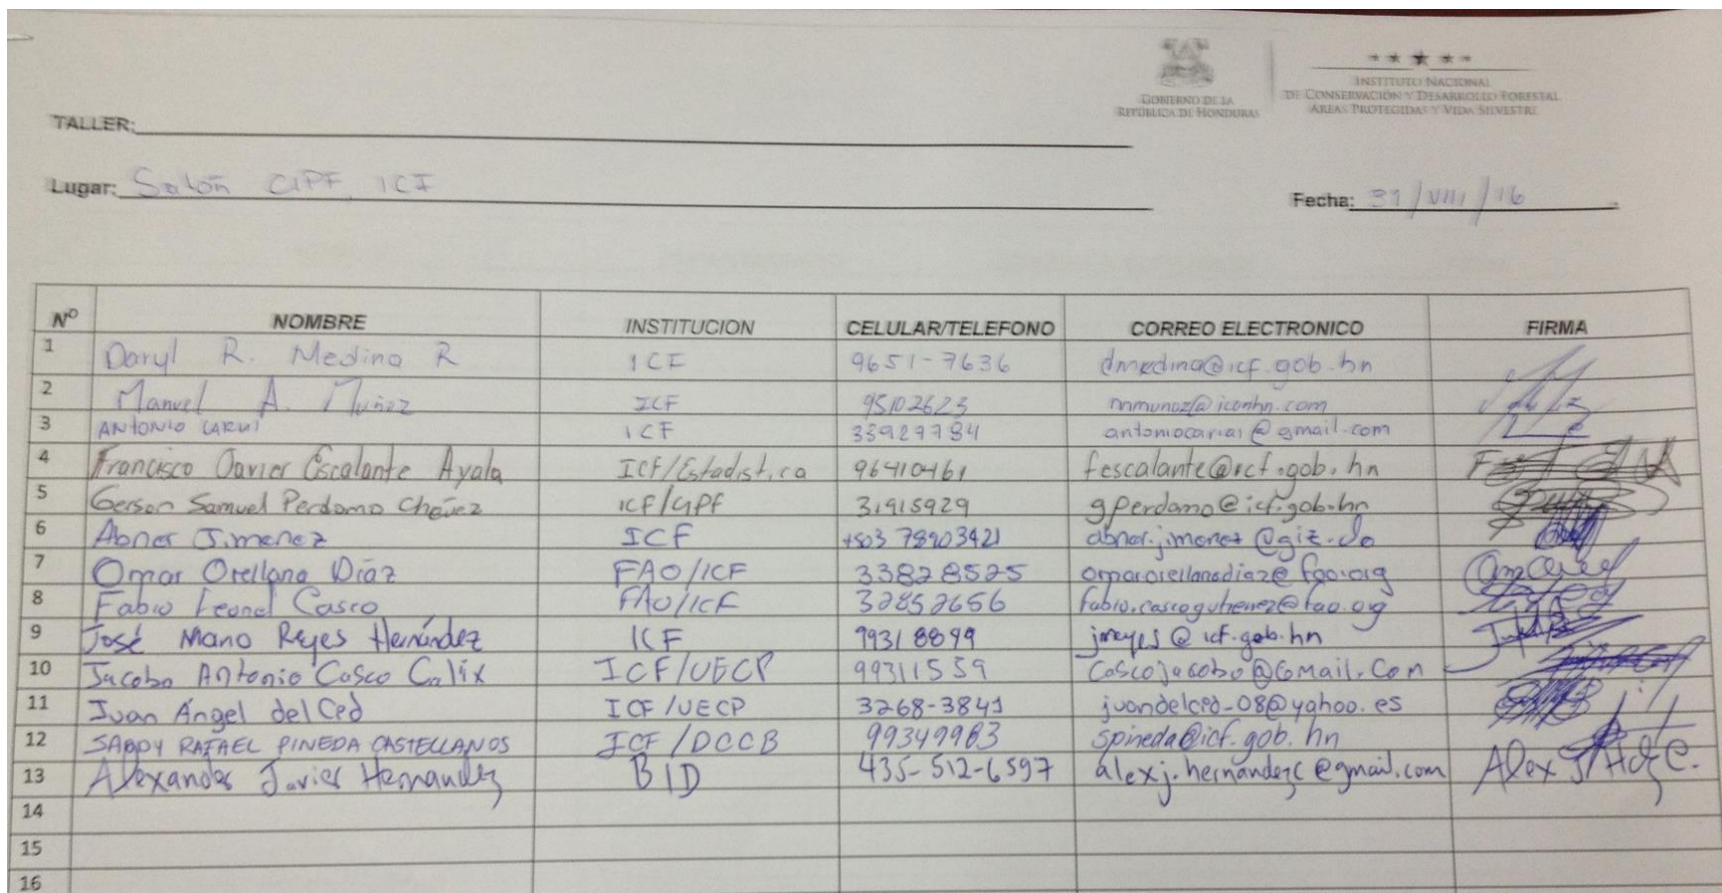 GOBIERNO DE LA
REPÚBLICA DE HONDURAS
INSTITUTO NACIONAL
DE CONSERVACIÓN Y DESARROLLO FORESTAL
ÁREAS PROTEGIDAS Y VIDA SILVESTRE
TALLER:
Lugar: Salón ICF
Fecha: 31/VIII/16
Nº NOMBRE INSTITUCION CELULAR/TELEFONO CORREO ELECTRONICO FIRMA
1 Daryl R. Medina R ICF 9651-7636 dmedina@icf.gob.hn
2 Manuel A. Muñoz ICF 95102623
3 ANTONIO ICF 33929784
4 Francisco Javier Escalante Ayala ICF/Estadistica 96410461 fescalante@icf.gob.hn
5 Gerson Samuel Perdomo Chávez 31915929 gperdomo@icf.gob.hn
6 Abner Jimenez ICF +503 78903421
7 Omar Orellana Díaz FAO/ICF 33828525 omar.orellanadiaz@fao.org
8 Fabio Leonel Casco FAO/ICF 32852656
9 José Mario Reyes Hernández ICF 99318899 jmreyes@icf.gob.hn
10 Jacobo Antonio Casco Calix ICF/UECP 99311559 Coscojacobo@Gmail.Com
11 Juan Ángel del Ced ICF/UECP 3268-3841 juandelced_08@yahoo.es
12 SABDY RAFAEL PINEDA CASTELLANOS ICF/DCCB 99349983 spineda@icf.gob.hn
13 Alexander Javier Hernandez BID 435-512-6597 alexj.hernandezc@gmail.com Alex J Hdz C.
14
15
16